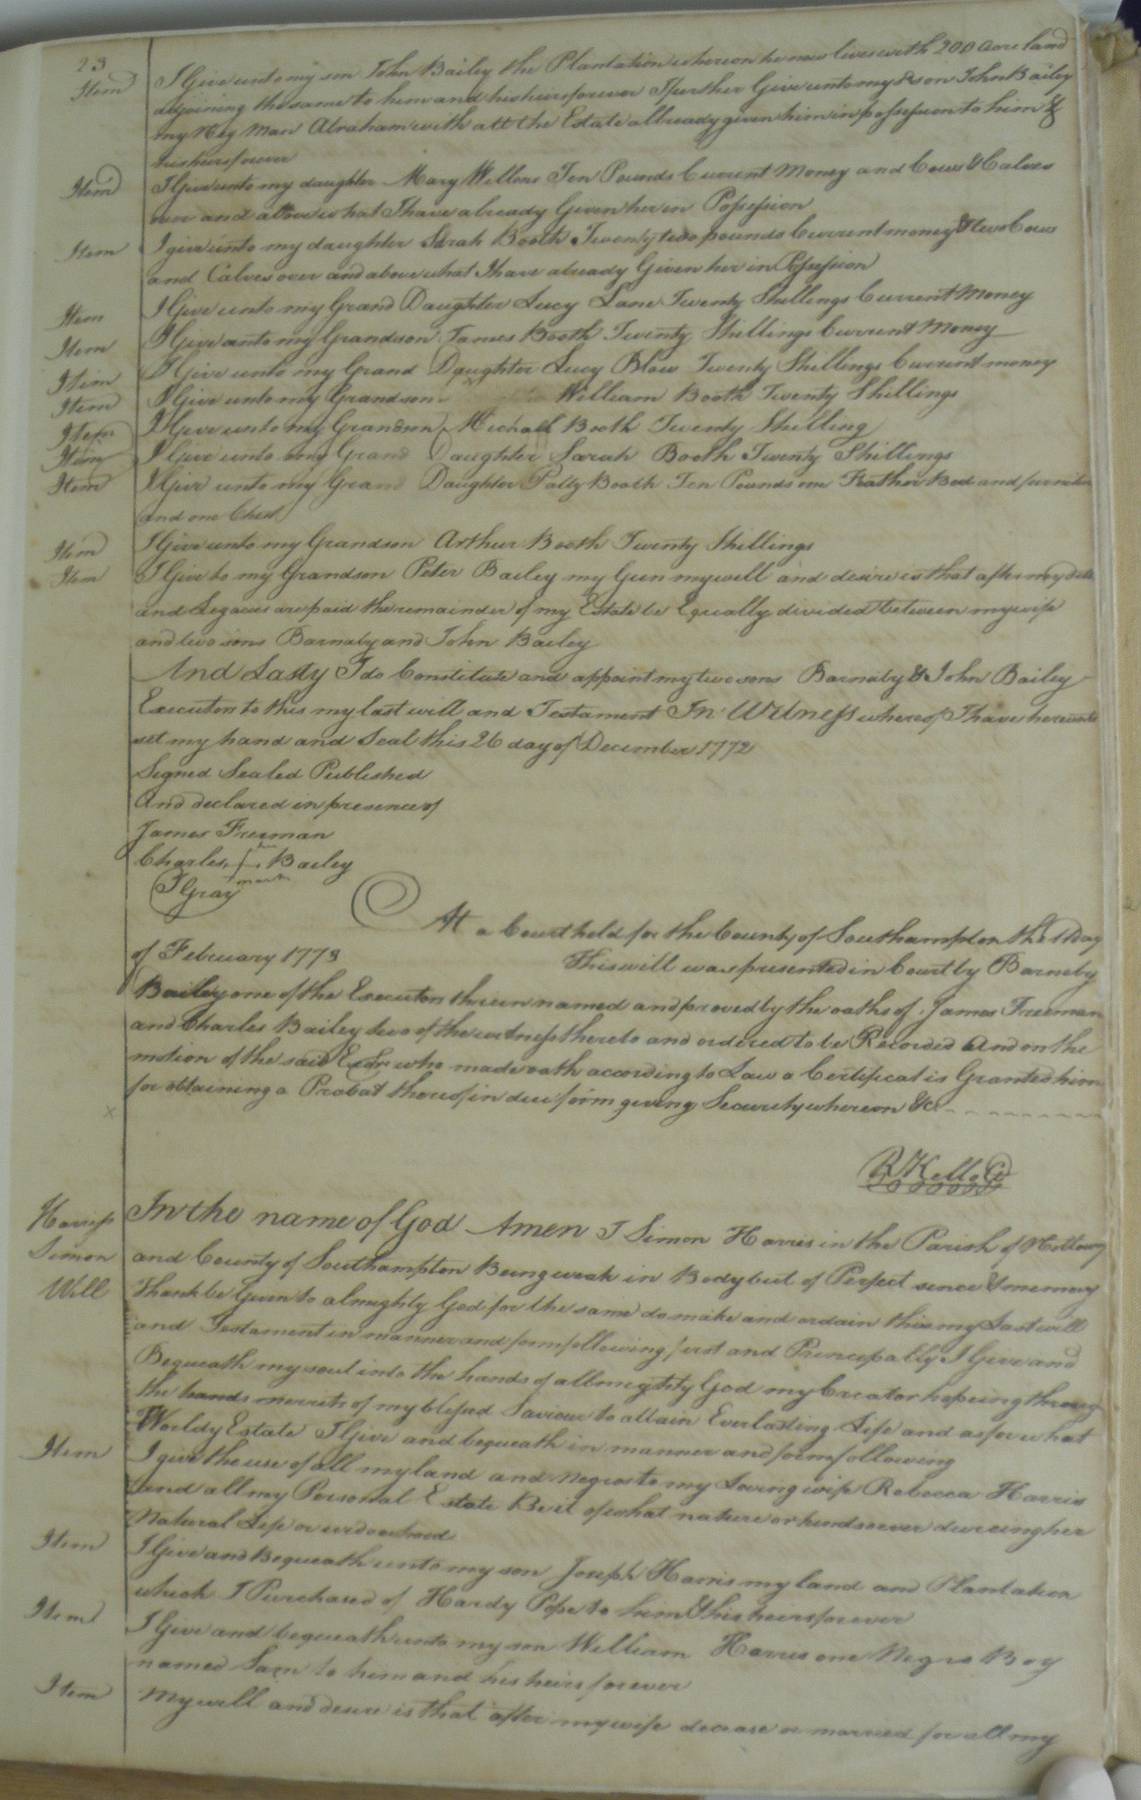 23
Item I Give unto my son John Bailey the Plantation whereon he now lives with 200 acre land
adjoining the same to him and his heirs forever I further Give unto my son John Bailey
my Neg Man Abraham with all the Estate allready given him in possession to him &
his heirs forever
Item I Give unto my daughter Mary Wellons Ten Pounds Current Money and Cows & Calves
over and above what I have already Given her in Possession
Item I give unto my daughter Sarah Booth Twenty two pounds Current money & two Cows
and Calves over and above what I have already Given her in Possession
Item I Give unto my Grand Daughter Lucy Lane Twenty Shillings Current Money
Item I Give unto my Grandson James Booth Twenty Shillings Current Money
Item I Give unto my Grand Daughter Lucy Blow Twenty Shillings Current money
Item I Give unto my Grandson William Booth Twenty Shillings
Item I Give unto my Grandson Michael Booth Twenty Shilling
Item I Give unto my Grand Daughter Sarah Booth Twenty Shillings
Item I Give unto my Grand Daughter Patty Booth Ten Pounds one Feather Bed and furniture
and one Chest
Item I Give unto my Grandson Arthur Booth Twenty Shillings
Item I Give to my Grandson Peter Bailey my Gun my will and desire is that after my debts
and Legacies are paid the remainder of my Estate be Equally divided between my wife
and two sons Barnaby and John Bailey
And Lasty I do Constitute and appoint my two sons Barnaby & John Bailey
Executors to this my last will and Testament In Witness whereof I have hereunto
set my hand and Seal this 26 day of December 1772
Signed Sealed Published
And declared in presence of
James Freeman
Charles his Bailey
mark
J Gray
At a Court held for the County of Southampton the Day
of February 1773 This will was presented in Court by Barnaby
Bailey one of the Executors therein named and proved by the oaths of James Freeman
and Charles Bailey two of the witness thereto and ordered to be Recorded And on the
motion of the said Exetr who made oath according to Law a Certificat is Granted him
for obtaining a Probat thereof in due form giving Security whereon &c
x
R Kello C
Harriss In the name of God Amen I Simon Harris in the Parish of Nottoway
Simon and County of Southampton Being weak in Body but of Perfect sence & memory
Will Thank be Given to almighty God for the same do make and ordain this my Last will
and Testament in manner and form following first and Principally I Give and
Bequeath my soul into the hands of allmeghty God my Creator hopeing through
the hands merrits of my blessed Saviour to attain Everlasting Life and as for what
Worldy Estate I Give and bequeath in manner and form following
Item I give the use of all my land and negros to my Loving wife Rebecca Harris
and all my Personal Estate Be it of what nature or kind soever dureing her
Natural Life or widowhood
Item I Give and Bequeath unto my son Joseph Harris my land and Plantation
which I Purchased of Hardy Pope to him & his heirs forever
Item I Give and bequeath unto my son William Harris one Negro Boy
named Sam to him and his heirs forever
Item My will and desire is that after my wife decease or married for all my